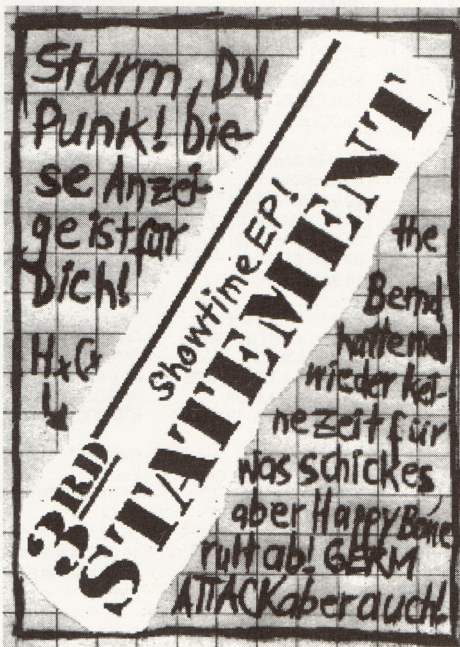 Sturm, Du
Punk! Die-
se Anzei-
ge ist für
Dich!
HxCx
3RD
STATEMENT
Showtime EP!
the
Bernd
hatte mal
wieder kei-
ne zeit für
was schickes
aber Happy Bone
rult ab! GERM
ATTACK aber auch!